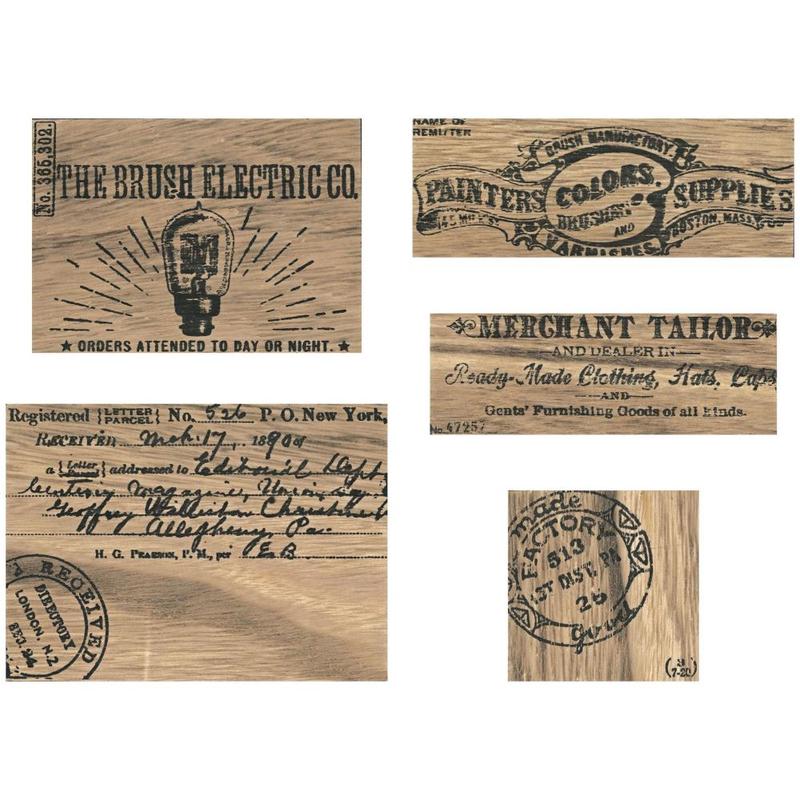 No. 365,302.
THE BRUSH ELECTRIC CO.
★ ORDERS ATTENDED TO DAY OR NIGHT. ★
NAME OF
REMITTER
BRUSH MANUFACTORY
PAINTERS COLORS. SUPPLIES
BRUSHES
AND
VARNISHES
BOSTON, MASS.
MERCHANT TAILOR
AND DEALER IN
Ready-Made Clothing, Hats, Caps
AND
Gents' Furnishing Goods of all kinds.
No. 47257
Registered {LETTER PARCEL} No. 526 P. O. New York,
RECEIVED Mch. 17, 1890 of
a {Letter Parcel} addressed to Editorial Dept
Century Magazine, Union Sq.
Geoffrey Williston Christine
Allegheny, Pa.
H. G. PEARSON, P. M., per E B
RECEIVED
DIRECTORY
LONDON. N. Z
made
FACTORY
513
1ST DIST. PA
26
good
(7-20)